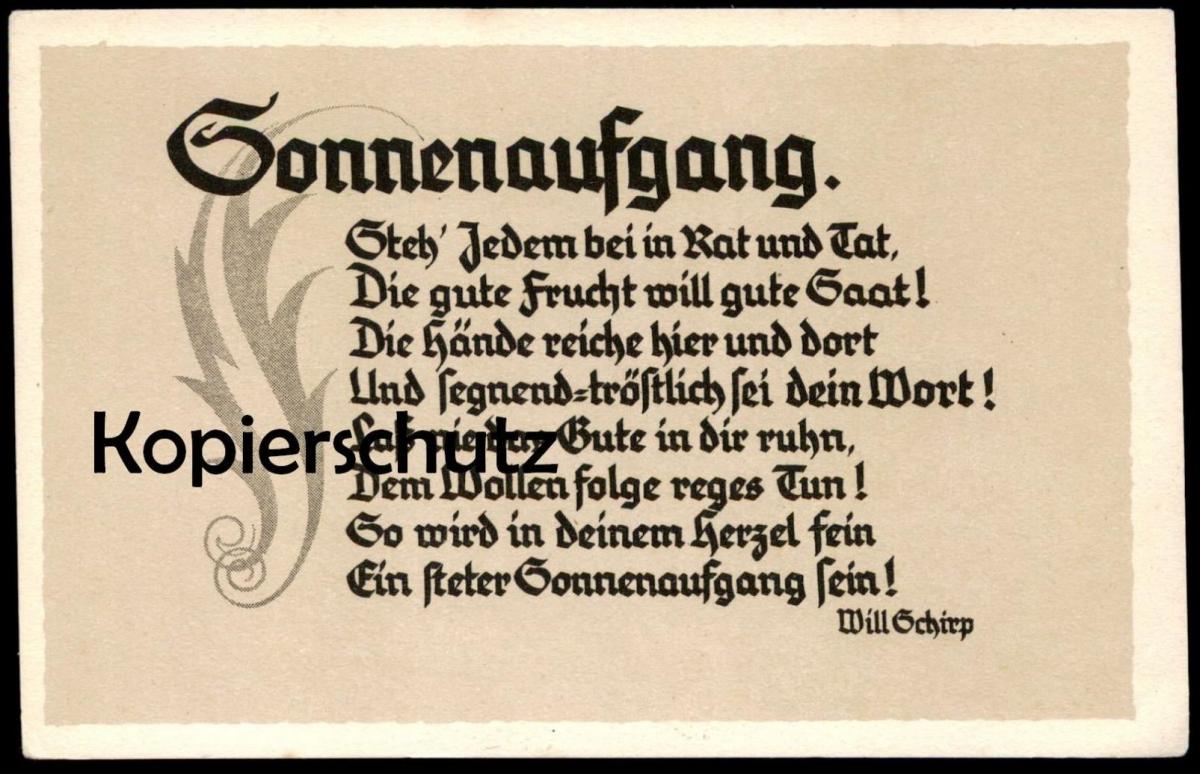 Sonnenaufgang.
Steh' Jedem bei in Rat und Tat,
Die gute Frucht will gute Saat!
Die Hände reiche hier und dort
Und segnend=tröstlich sei dein Wort!
Laß nie das Gute in dir ruhn,
Kopierschutz
Dem Wollen folge reges Tun!
So wird in deinem Herzel fein
Ein steter Sonnenaufgang sein!
Will Schirp